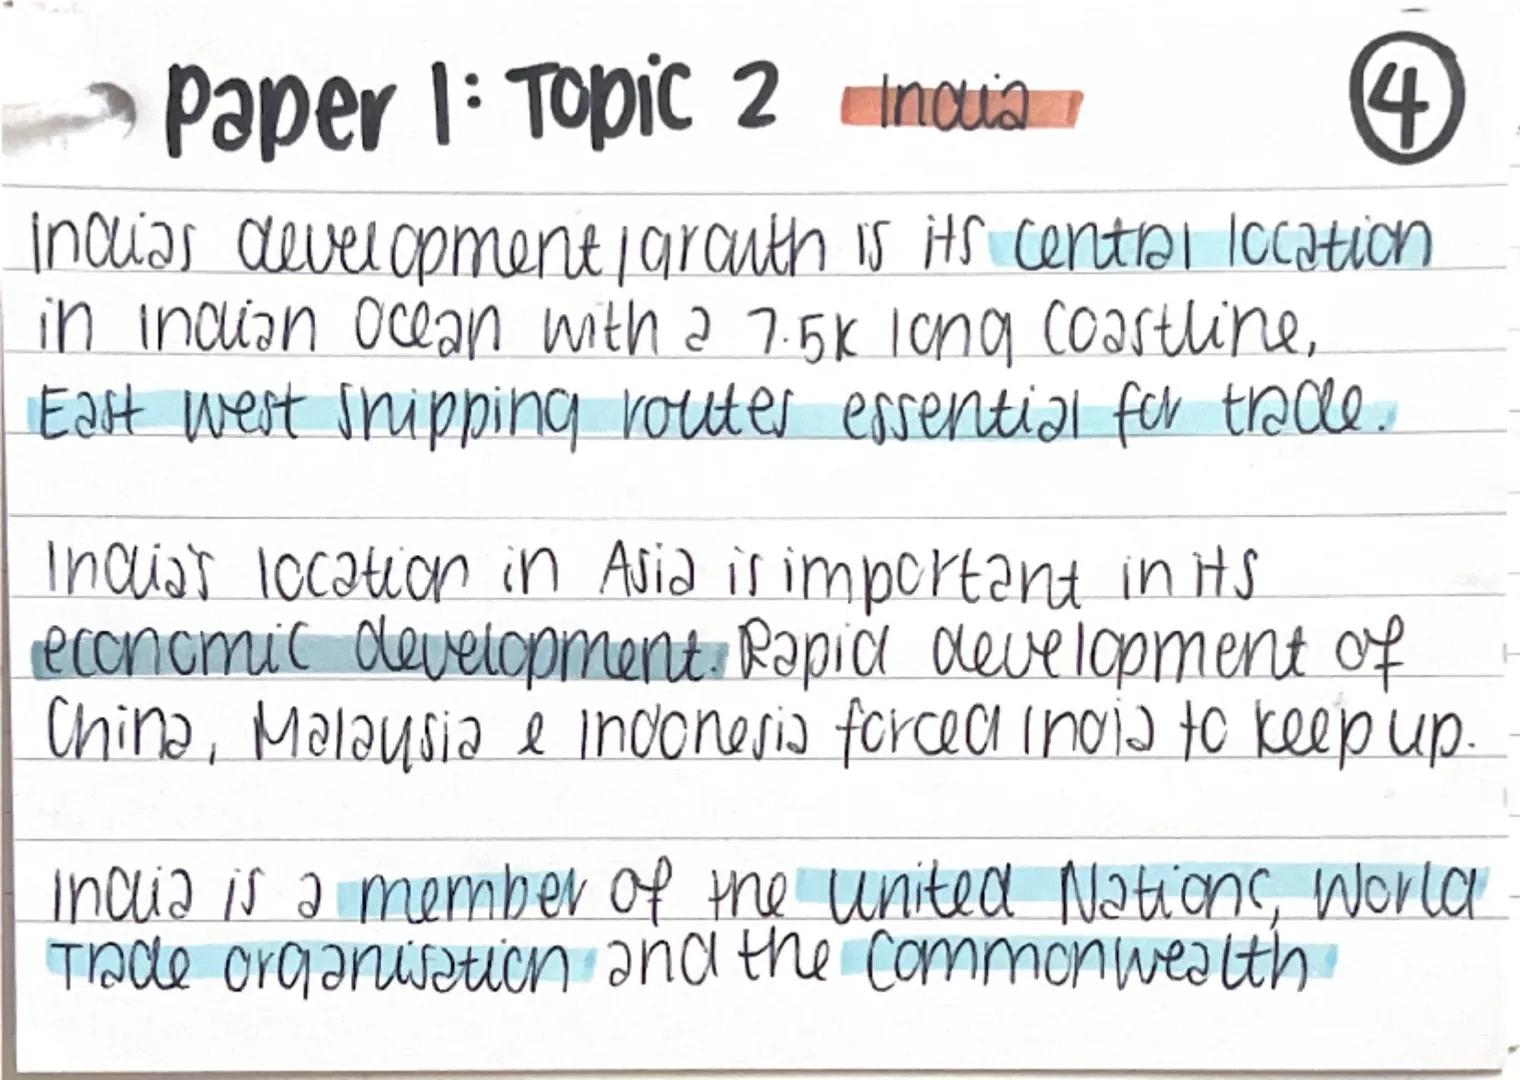 Paper 1: Topic 2 India 4
Indias development/growth is its central location
in indian Ocean with a 7.5k long coastline,
East west shipping routes essential for trade.
India's location in Asia is important in its
economic development. Rapid development of
China, Malaysia & indonesia forced India to keep up.
India is a member of the United Nations, World
Trade organisation and the Commonwealth